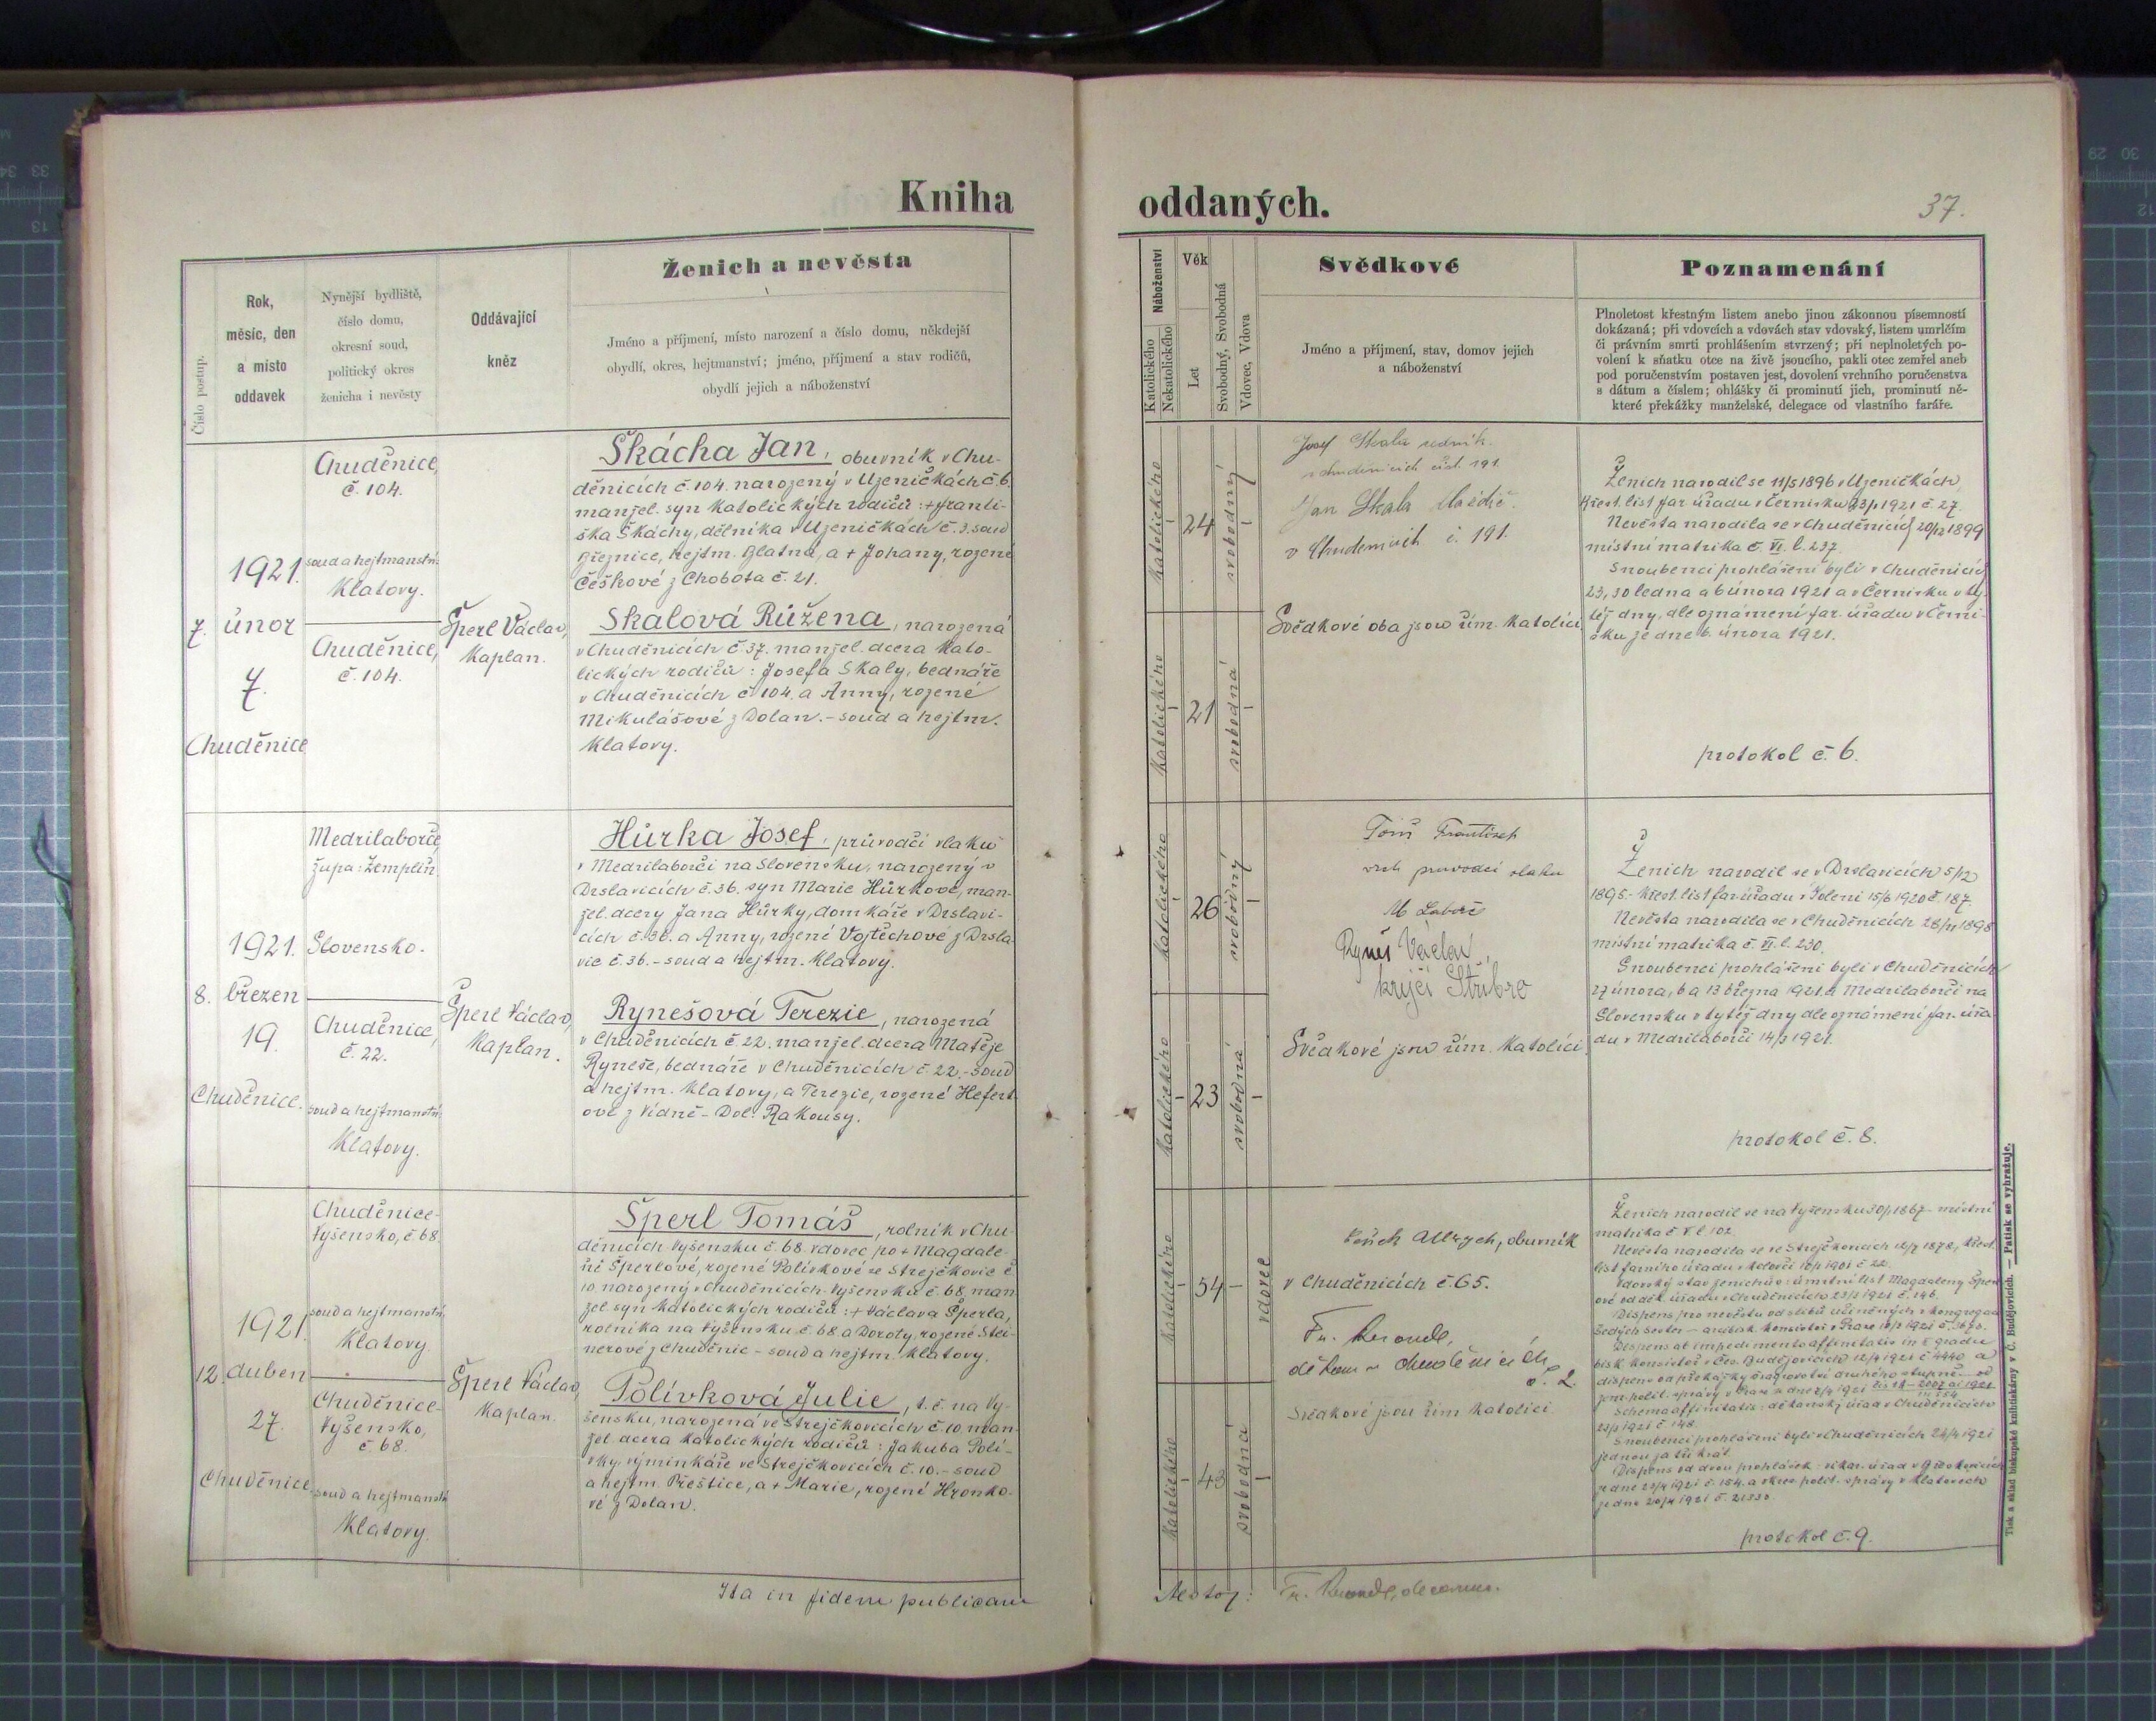 Kniha
Číslo postup.
Rok,
měsíc, den
a místo
oddavek
Nynější bydliště,
číslo domu,
okresní soud,
politický okres
ženicha i nevěsty
Oddávající
kněz
Ženich a nevěsta
Jméno a příjmení, místo narození a číslo domu, někdejší
obydlí, okres, hejtmanství; jméno, příjmení a stav rodičů,
obydlí jejich a náboženství
7.
1921.
únor
7.
Chuděnice
Chuděnice,
č. 104.
soud a hejtmanství
Klatovy.
Chuděnice,
č. 104.
Šperl Václav,
Kaplan.
Skácha Jan, obuvník v Chu-
děnicích č. 104. narozený v Uzeničkách č. 6.
manžel. syn katolických rodičů: + Franti-
ška Skáchy, dělníka v Uzeničkách č. 3. soud
Březnice, hejtm. Blatná, a + Johany, rozené
Češkové z Chobota č. 21.
Skalová Růžena, narozená
v Chuděnicích č. 37. manžel. dcera kato-
lických rodičů: Josefa Skaly, bednáře
v Chuděnicích č. 104. a Anny, rozené
Mikulášové z Dolan. - soud a hejtm.
Klatovy.
8.
1921.
březen
19.
Chuděnice.
Medzilaborče
župa: Zemplín
Slovensko.
Chuděnice,
č. 22.
soud a hejtmanství
Klatovy.
Šperl Václav,
Kaplan.
Hůrka Josef, průvodčí vlaků
v Medzilaborči na Slovensku, narozený v
Drslavicích č. 36. syn Marie Hůrkové, man-
žel. dcery Jana Hůrky, domkáře v Drslavi-
cích č. 36. a Anny, rozené Vojtěchové z Drsla
vic č. 36. - soud a hejtm. Klatovy.
Rynešová Terezie, narozená
v Chuděnicích č. 22. manžel. dcera Matěje
Ryneše, bednáře v Chuděnicích č. 22. - soud
a hejtm. Klatovy, a Terezie, rozené Hefert
ové z Vídně - Dol. Rakousy.
12.
1921.
duben
27.
Chuděnice
Chuděnice-
Vyšensko, č. 68.
soud a hejtmanství
Klatovy
Chuděnice-
Vyšensko,
č. 68.
soud a hejtmanství
Klatovy.
Šperl Václav
Kaplan.
Šperl Tomáš, rolník v Chu-
děnicích Vyšensku č. 68. vdovec po + Magdale-
ně Šperlové, rozené Polívkové ze Strejčkovic č.
10 narozený v Chuděnicích-Vyšensku č. 68. man
žel. syn katolických rodičů: + Václava Šperla,
rolníka na Vyšensku č. 68 a Doroty, rozené Stei-
nerové z Chuděnic - soud a hejtm. Klatovy.
Polívková Julie, t. č. na Vy-
šensku, narozená ve Strejčkovicích č. 10. man
žel. dcera katolických rodičů: Jakuba Polí-
vky, výminkáře ve Strejčkovicích č. 10. - soud
a hejtm. Přeštice, a + Marie, rozené Hronko-
vé z Dolan.
Ita in fidem publicam
oddaných.
37.
Náboženství
Katolického
Nekatolického
Věk
Let
Svobodný, Svobodná
Vdovec, Vdova
Svědkové
Jméno a příjmení, stav, domov jejich
a náboženství
Poznamenání
Plnoletost křestným listem anebo jinou zákonnou písemností
dokázaná; při vdovcích a vdovách stav vdovský, listem umrlčím
či právním smrti prohlášením stvrzený; při neplnoletých po-
volení k sňatku otce na živě jsoucího, pakli otec zemřel aneb
pod poručenstvím postaven jest, dovolení vrchního poručenstva
s dátum a číslem; ohlášky či prominutí jich, prominutí ně-
které překážky manželské, delegace od vlastního faráře.
Katolického
24
svobodný
Katolického
21
svobodná
Josef Skala
Jan Skala
v Chudenicích č. 191.
Svědkové oba jsou řím. Katolíci
Ženich narodil se 11/5 1896 v Uzeničkách,
Křest. list far. úřadu v Černisku 23/1 1921 č. 27.
Nevěsta narodila se v Chuděnicích 20/12 1899
místní matrika č. VI. l. 237.
Snoubenci prohlášeni byli v Chuděnicích
23, 30 ledna a 6 února 1921 a v Černisku v ty
též dny, dle oznámení far. úřadu v Černi-
sku ze dne 6. února 1921.
protokol č. 6.
Katolického
26
svobodný
Katolického
23
svobodná
František
vrch průvodčí vlaku
M Laborč
Ryneš Václav,
krejčí Stříbro
Svědkové jsou řím. Katolíci.
Ženich narodil se v Drslavicích 5/12
1895.- Křest. list far. úřadu v 15/6 1920 č. 187.
Nevěsta narodila se v Chuděnicích 1898
místní matrika č. VI. l. 230.
Snoubenci prohlášeni byli v Chuděnicích
27 února, 6 a 13 března 1921. a Medzilaborči na
Slovensku v tytéž dny dle oznámení far. úřa
du v Medzilaborči 14/3 1921.
protokol č. 8.
Katolického
54
vdovec
Katolického
43
svobodná
obuvník
v Chuděnicích č. 65.
Fr.
děkan v Chuděnicích
č. 2.
Svědkové jsou řím Katolíci
Ženich narodil se na Vyšensku 30/1 1867 - místní
matrika č V l. 102
Nevěsta narodila se ve Strejčkovicích 1878, křest.
list farního úřadu v 1901 č. 22.
Vdovský stav ženichův: úmrtní list Magdaleny Šperl
ové od děk. úřadu v Chuděnicích 23/3 1921 č. 146.
Dispens pro nevěstu od slibů učiněných v kongregaci
šedých sester - arcibisk. konsistoř v Praze 1921
Dispens ab impedimento affinitatis in I gradu
bisk. konsistoř v Čes. Budějovicích 12/4 1921 č 4440 a
dispens od překážky švagrovství druhého stupně od
zem. polit. správy v Praze 1921
Schema affinitatis: děkanský úřad v Chuděnicích
1921 č 148.
Snoubenci prohlášeni byli v Chuděnicích 24/4 1921
jednou za tři krát
Dispens od dvou prohlášek: vikar. úřad v
ze dne 1921 č. 154. a okres. polit. správy v Klatovech
ze dne 20/4 1921
protokol č. 9.
Tisk a sklad biskupské knihtiskárny v Č. Budějovicích. — Patisk se vyhražuje.
Fr.